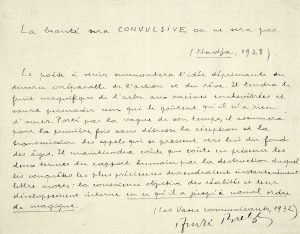 La beauté sera CONVULSIVE ou ne sera pas.
(Nadja, 1928)
Le poète à venir surmontera l'idée déprimante du
divorce irréparable de l'action et du rêve. Il tendra le
fruit magnifique de l'arbre aux racines enchevêtrées et
saura persuader ceux qui le goûtent qu'il n'a rien
d'amer. Porté par la vague de son temps, il assumera
pour la première fois sans détresse la réception et la
transmission des appels qui se pressent vers lui du fond
des âges. Il maintiendra coûte que coûte en présence les
deux termes du rapport humain par la destruction duquel
les conquêtes les plus précieuses deviendraient instantanément
lettre morte : la conscience objective des réalités et leur
développement interne en ce qu'il a jusqu'à nouvel ordre
de magique.
(Les Vases communicants, 1932)
André Breton